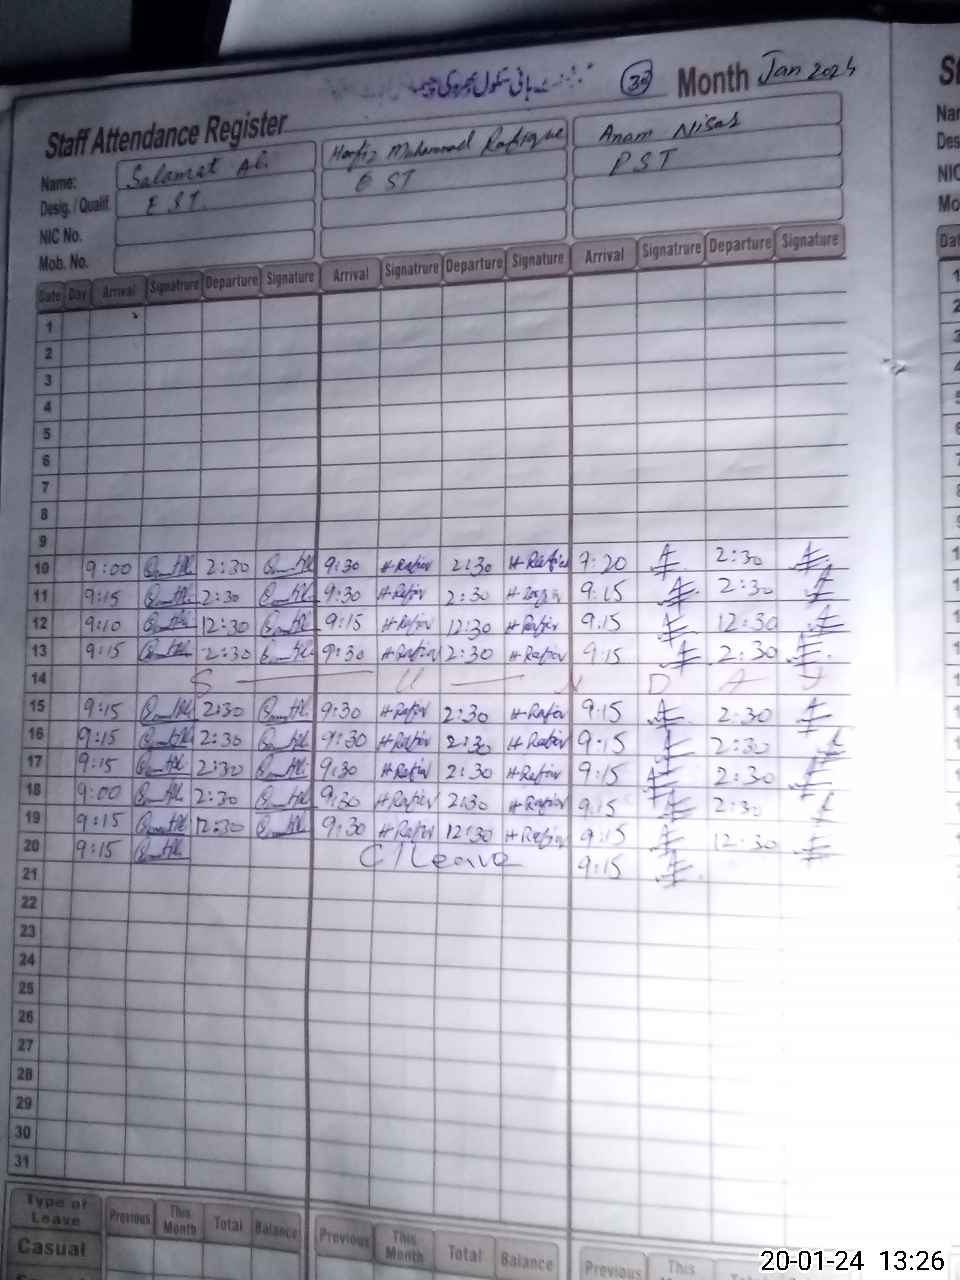 ہائی سکول
30 Month Jan 2024
Staff Attendance Register
Name: Salamat Ali Hafiz Muhammad Rafique Anam Nisar
Desig. / Qualif. E S T. E ST P S T
NIC No.
Mob. No.
Date Day Arrival Signatrure Departure Signature Arrival Signatrure Departure Signature Arrival Signatrure Departure Signature
1
2
3
4
5
6
7
8
9
10 9:00 2:30 9:30 H-Rafiq 2:30 H-Rafiq 9:20 2:30
11 9:15 2:30 9:30 H-Rafiq 2:30 H-Rafiq 9:15 2:30
12 9:10 12:30 9:15 H-Rafiq 12:30 H-Rafiq 9:15 12:30
13 9:15 2:30 9:30 H-Rafiq 2:30 H-Rafiq 9:15 2:30
14 S U N D A Y
15 9:15 2:30 9:30 H-Rafiq 2:30 H-Rafiq 9:15 2:30
16 9:15 2:30 9:30 H-Rafiq 2:30 H-Rafiq 9:15 2:30
17 9:15 2:30 9:30 H-Rafiq 2:30 H-Rafiq 9:15 2:30
18 9:00 2:30 9:30 H-Rafiq 2:30 H-Rafiq 9:15 2:30
19 9:15 12:30 9:30 H-Rafiq 12:30 H-Rafiq 9:15 12:30
20 9:15 C/Leave 9:15
21
22
23
24
25
26
27
28
29
30
31
Type of Leave Previous This Month Total Balance Previous This Month Total Balance Previous This
Casual
20-01-24 13:26